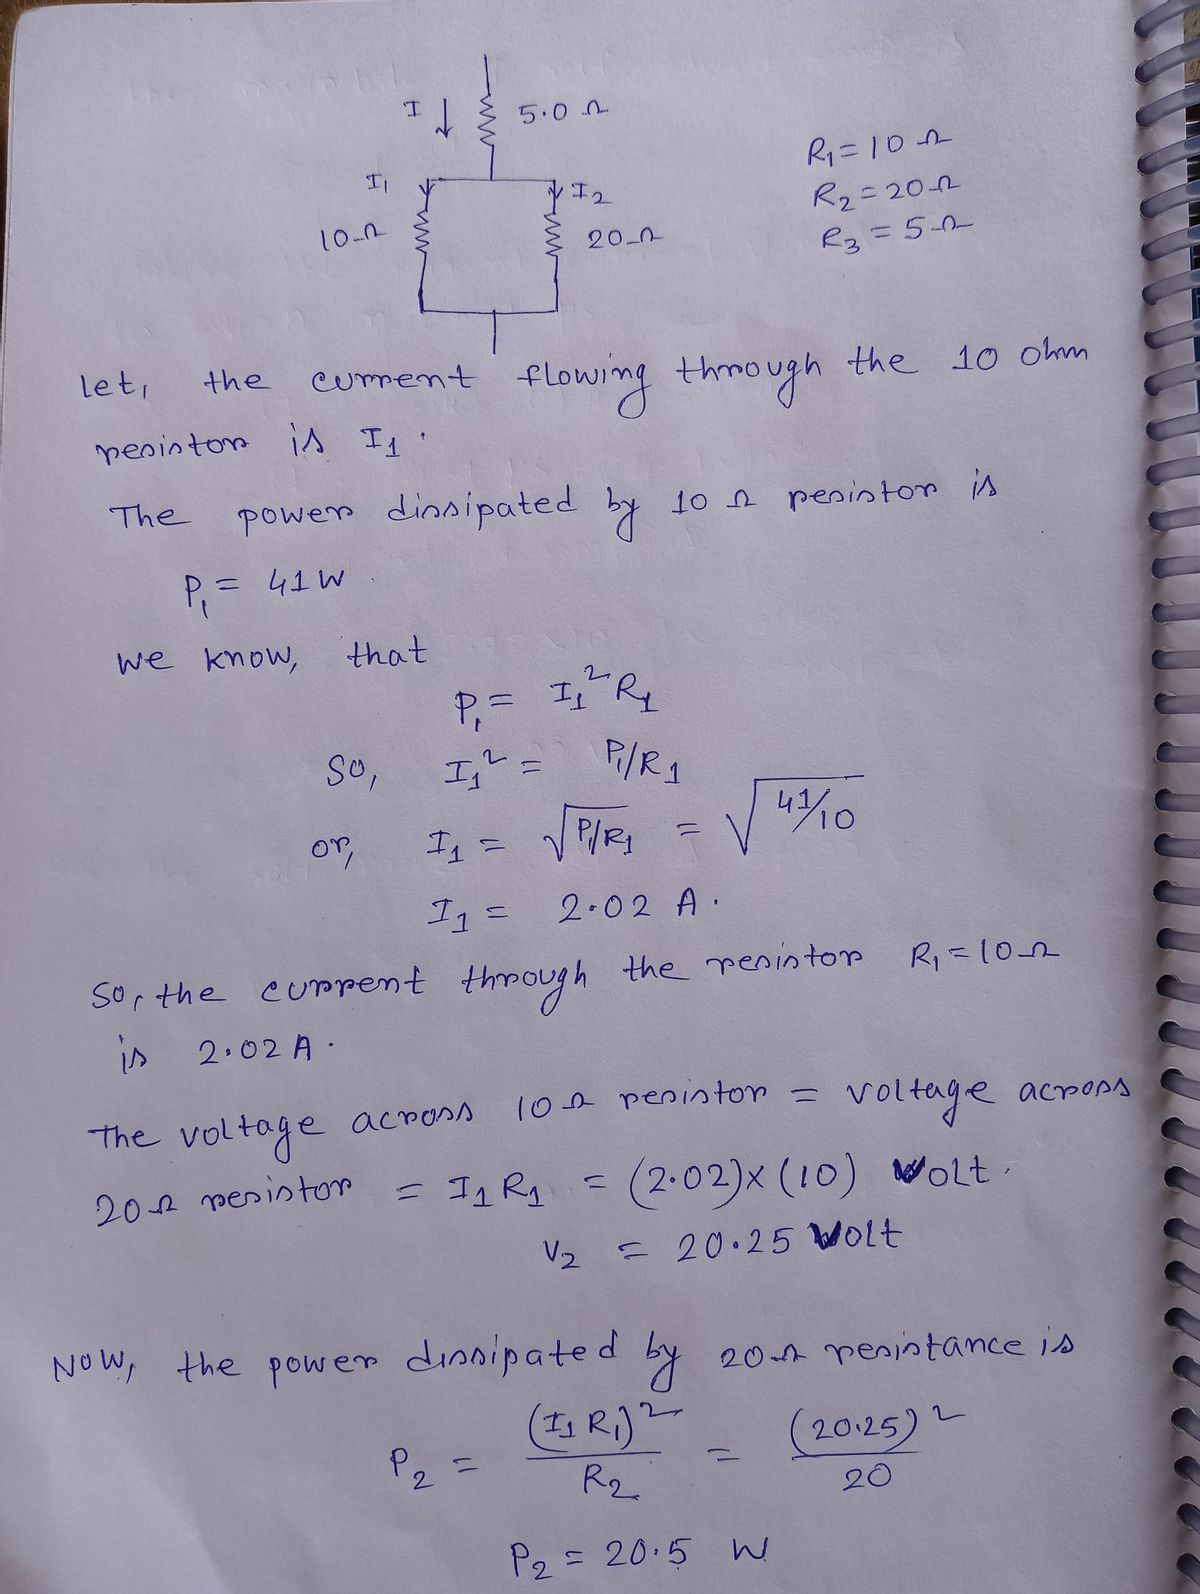 I ↓ 5.0 Ω
R₁ = 10 Ω
I₁ I₂
R₂ = 20 Ω
10 Ω 20 Ω
R₃ = 5 Ω
Let, the current flowing through the 10 ohm
resistor is I₁.
The power dissipated by 10 Ω resistor is
P₁ = 41 W.
we know, that
P₁ = I₁² R₁
So, I₁² = P₁/R₁
or, I₁ = √P₁/R₁ = √41/10
I₁ = 2.02 A.
So, the current through the resistor R₁ = 10 Ω
is 2.02 A.
The voltage across 10 Ω resistor = voltage across
20 Ω resistor = I₁ R₁ = (2.02) × (10) Volt.
V₂ = 20.25 Volt
Now, the power dissipated by 20 Ω resistance is
P₂ = (I₁ R₁)² / R₂ = (20.25)² / 20
P₂ = 20.5 W